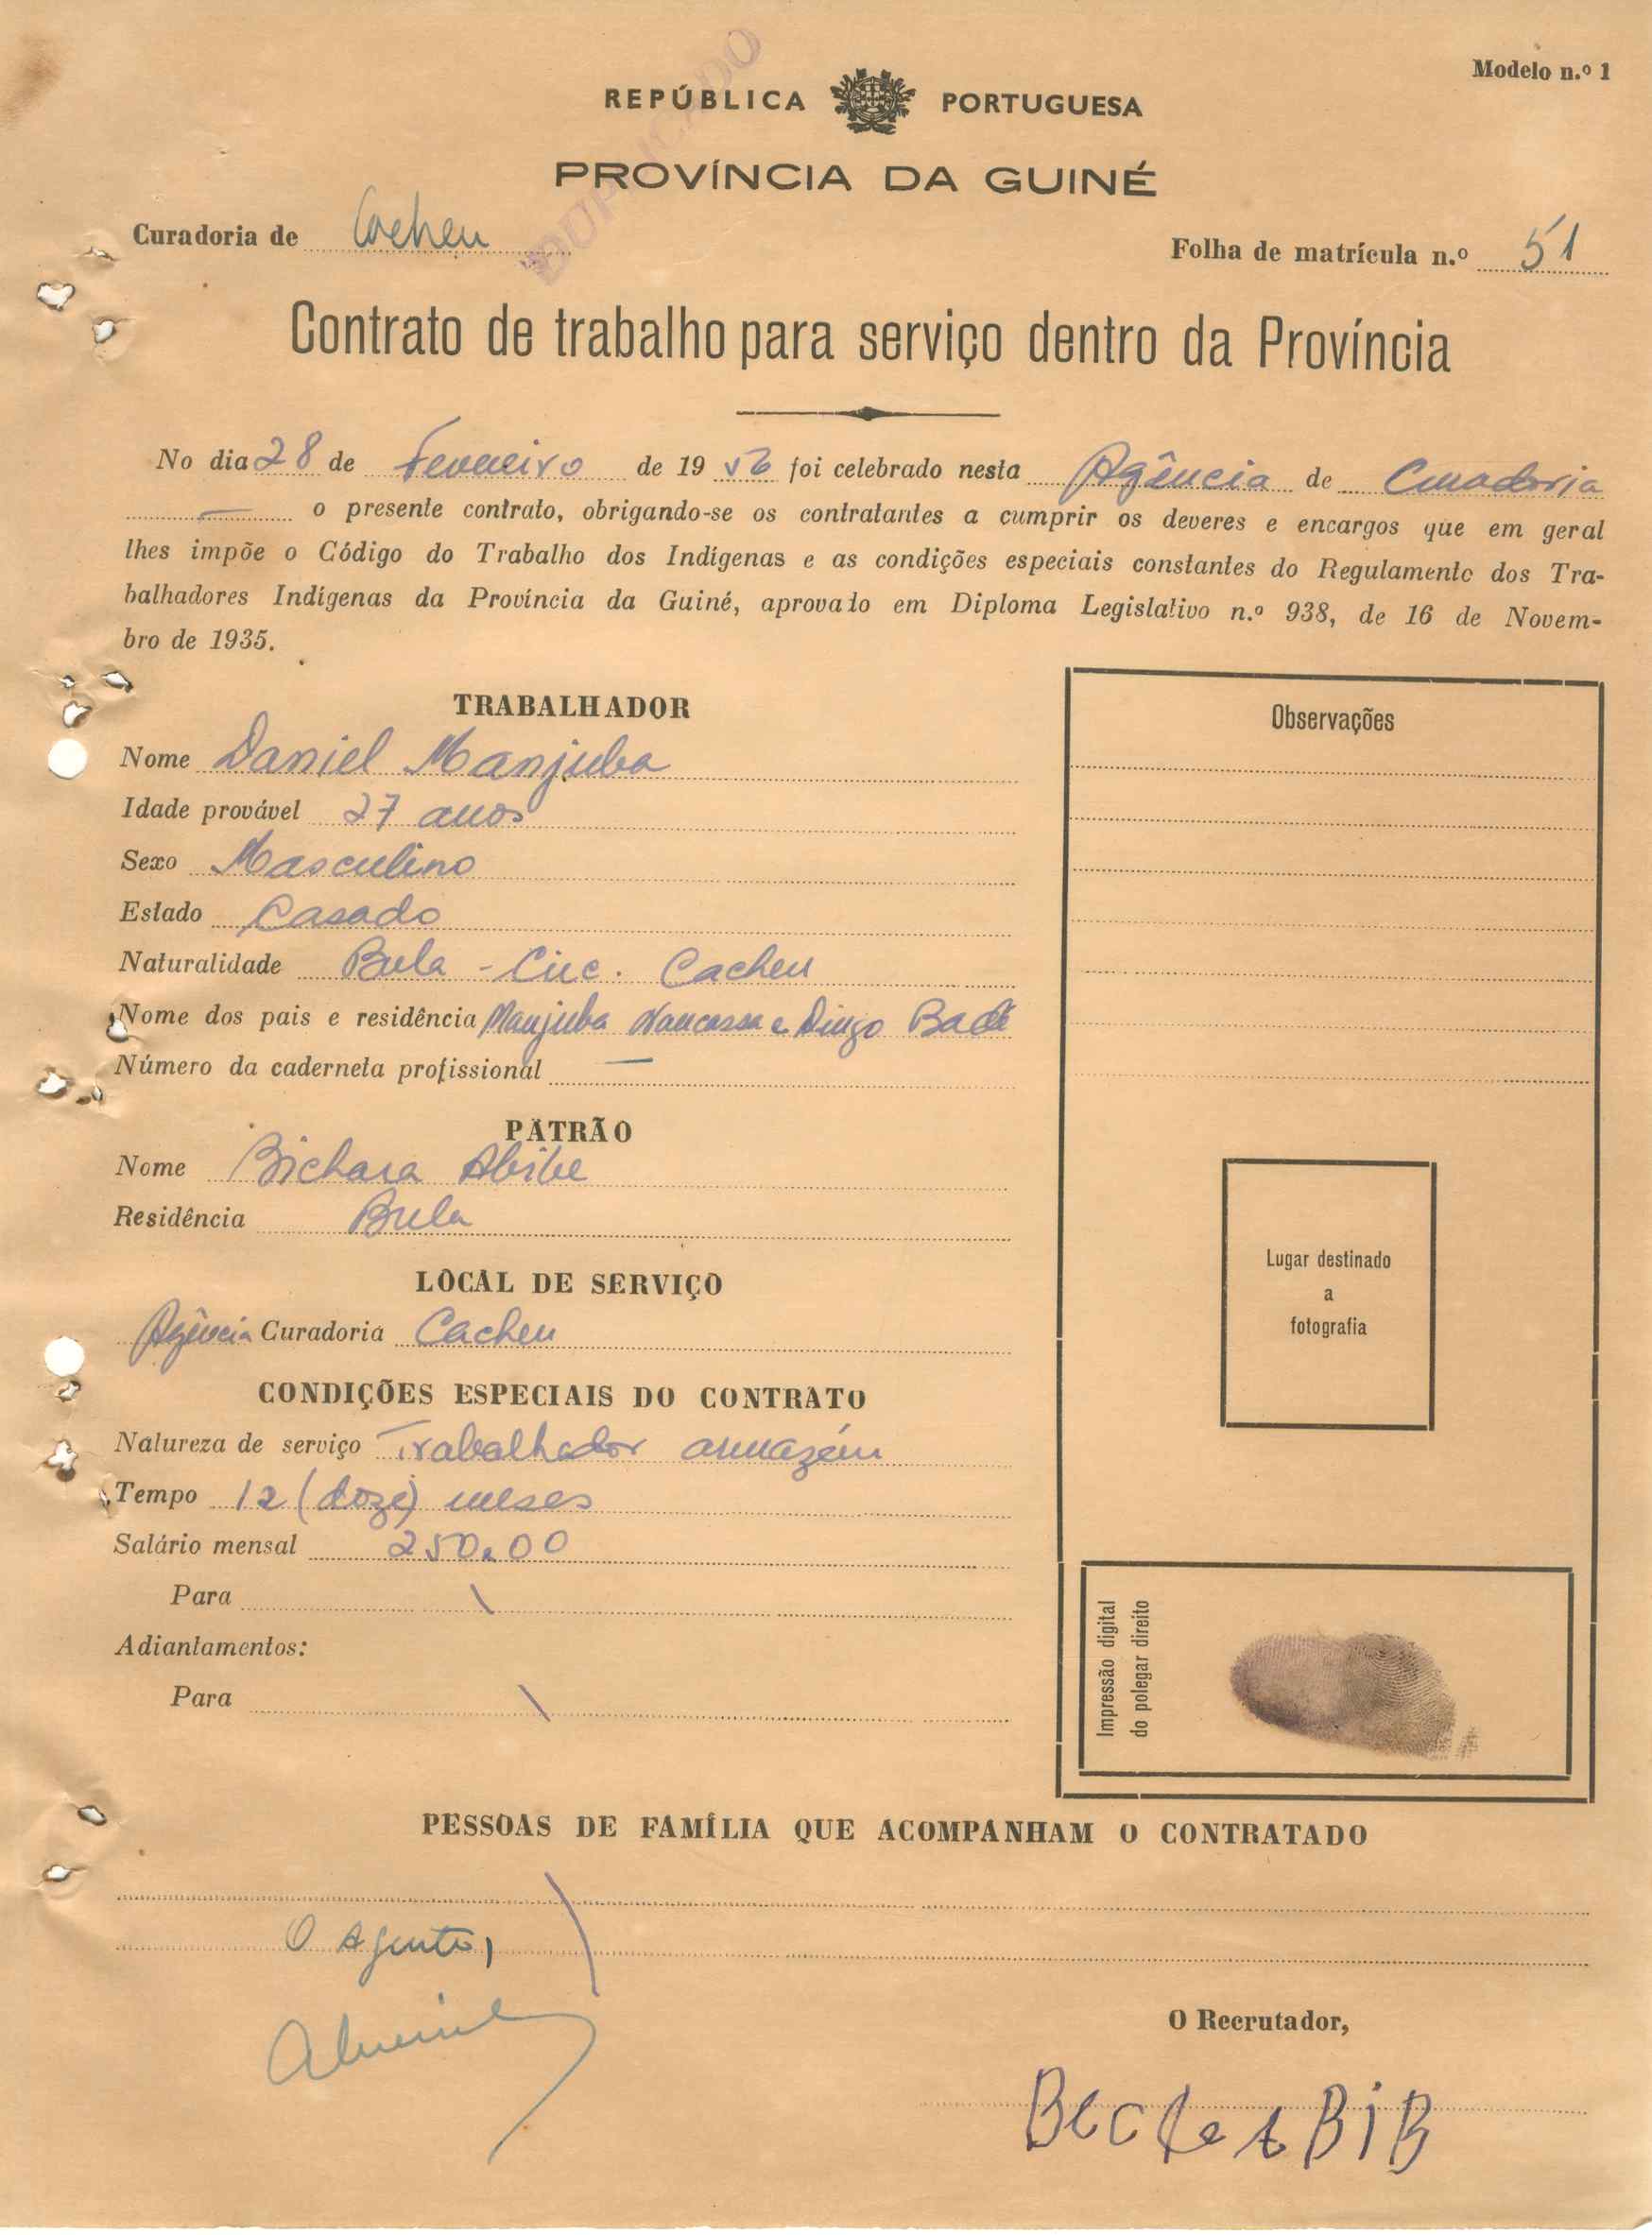 Modelo n.º 1
REPÚBLICA PORTUGUESA
DUPLICADO
PROVÍNCIA DA GUINÉ
Curadoria de Cacheu
Folha de matrícula n.º 51
Contrato de trabalho para serviço dentro da Província
No dia 28 de Fevereiro de 1956 foi celebrado nesta Agência de Curadoria
— o presente contrato, obrigando-se os contratantes a cumprir os deveres e encargos que em geral
lhes impõe o Código do Trabalho dos Indígenas e as condições especiais constantes do Regulamento dos Tra-
balhadores Indígenas da Província da Guiné, aprovado em Diploma Legislativo n.º 938, de 16 de Novem-
bro de 1935.
TRABALHADOR
Nome Daniel Manjuba
Idade provável 27 anos
Sexo Masculino
Estado Casado
Naturalidade Bula - Circ. Cacheu
Nome dos pais e residência Manjuba Nancassa e Dingo Badé
Número da caderneta profissional —
PATRÃO
Nome Bichara Abibe
Residência Bula
LOCAL DE SERVIÇO
Agência Curadoria Cacheu
CONDIÇÕES ESPECIAIS DO CONTRATO
Natureza de serviço Trabalhador armazém
Tempo 12 (doze) meses
Salário mensal 250.00
Para
Adiantamentos:
Para
Observações
Lugar destinado
a
fotografia
Impressão digital
do polegar direito
PESSOAS DE FAMÍLIA QUE ACOMPANHAM O CONTRATADO
O Agente,
O Recrutador,